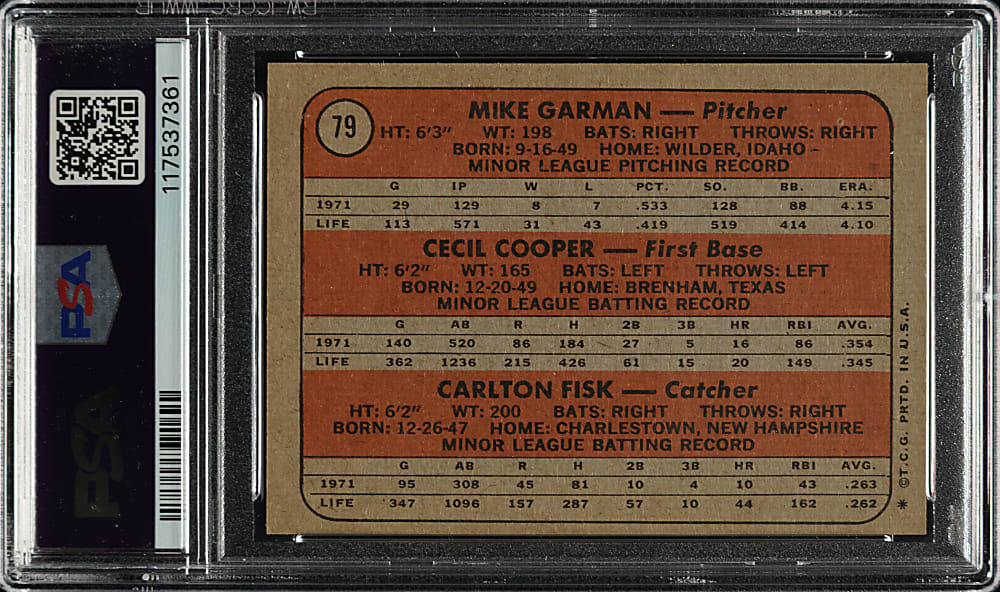 117537361
PSA
PSA
79
MIKE GARMAN — Pitcher
HT: 6'3" WT: 198 BATS: RIGHT THROWS: RIGHT
BORN: 9-16-49 HOME: WILDER, IDAHO
MINOR LEAGUE PITCHING RECORD
G IP W L PCT. SO. BB. ERA.
1971 29 129 8 7 .533 128 88 4.15
LIFE 113 571 31 43 .419 519 414 4.10
CECIL COOPER — First Base
HT: 6'2" WT: 165 BATS: LEFT THROWS: LEFT
BORN: 12-20-49 HOME: BRENHAM, TEXAS
MINOR LEAGUE BATTING RECORD
G AB R H 2B 3B HR RBI AVG.
1971 140 520 86 184 27 5 16 86 .354
LIFE 362 1236 215 426 61 15 20 149 .345
CARLTON FISK — Catcher
HT: 6'2" WT: 200 BATS: RIGHT THROWS: RIGHT
BORN: 12-26-47 HOME: CHARLESTOWN, NEW HAMPSHIRE
MINOR LEAGUE BATTING RECORD
G AB R H 2B 3B HR RBI AVG.
1971 95 308 45 81 10 4 10 43 .263
LIFE 347 1096 157 287 57 10 44 162 .262
* ©T.C.G. PRTD. IN U.S.A.